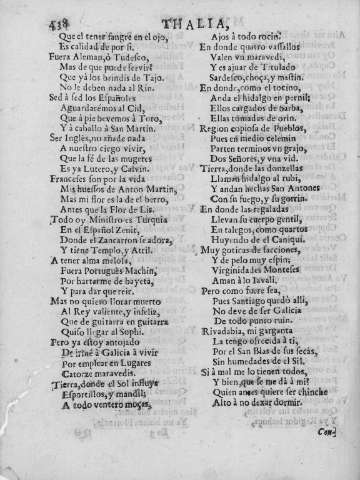 438 THALIA,
Que el tener sangre en el ojo,
Es calidad de por si.
Fuera Aleman, ò Tudesco,
Mas de que puede servir?
Que yà los brindis de Tajo.
No le deben nada al Rin.
Sed à sed los Españoles
Aguardarèmos al Cid,
Que à pie bevemos à Toro,
Y à caballo à San Martin.
Ser Inglès, no añade nada
A nuestro ciego vivir,
Que la fè de las mugeres
Es ya Lutero, y Calvin.
Franceses son por la vida
Mis huessos de Anton Martin,
Mas mi flor es la de el berro,
Antes que la Flor de Lis.
Todo oy Ministro es Turquia
En el Español Zenit,
Donde el Zancarron se adora,
Y tiene Templo, y Atril.
A tener alma melosa,
Fuera Portuguès Machin,
Por hartarme de bayeta,
Y para dar que reir.
Mas no quiero llorar muerto
Al Rey valiente, y infeliz,
Que de guitarra en guitarra
Quiso llegar al Sophi.
Pero ya estoy antojado
De irme à Galicia à vivir
Por emplear en Lugares
Catorze maravedis.
Tierra, donde el Sol influye
Esportillos, y mandil;
A todo ventero moças,
Ajos à todo rocin.
En donde quatro vassallos
Valen un maravedi,
Y es ajuar de Titulado
Sardesco, choça, y mastin.
En donde, como el tocino,
Anda el hidalgo en pernil;
Ellos cargados de barba,
Ellas tomadas de orin.
Region copiosa de Pueblos,
Pues en medio celemin
Parten terminos vn grajo,
Dos Señores, y vna vid.
Tierra, donde las donzellas
Llaman hidalgo al rubi,
Y andan hechas San Antones
Con su fuego, y su gorrin.
En donde las regaladas
Llevan su cuerpo gentil,
En talegos, como quartos
Huyendo de el Caniqui.
Muy goticas de facciones,
Y de pelo muy espin;
Virginidades Monteses
Aman à lo Javali.
Pero como fuere sea,
Pues Santiago quedò alli,
No deve de ser Galicia
De todo punto ruin.
Rivadabia, mi garganta
La tengo ofrecida à ti,
Por el San Blas de sus secas,
Sin humedades de el Sil.
Si à mal me lo tienen todos,
Y bien, que se me dà à mi?
Quien antes quiere ser chinche
Alto à no dexar dormir.
Con-